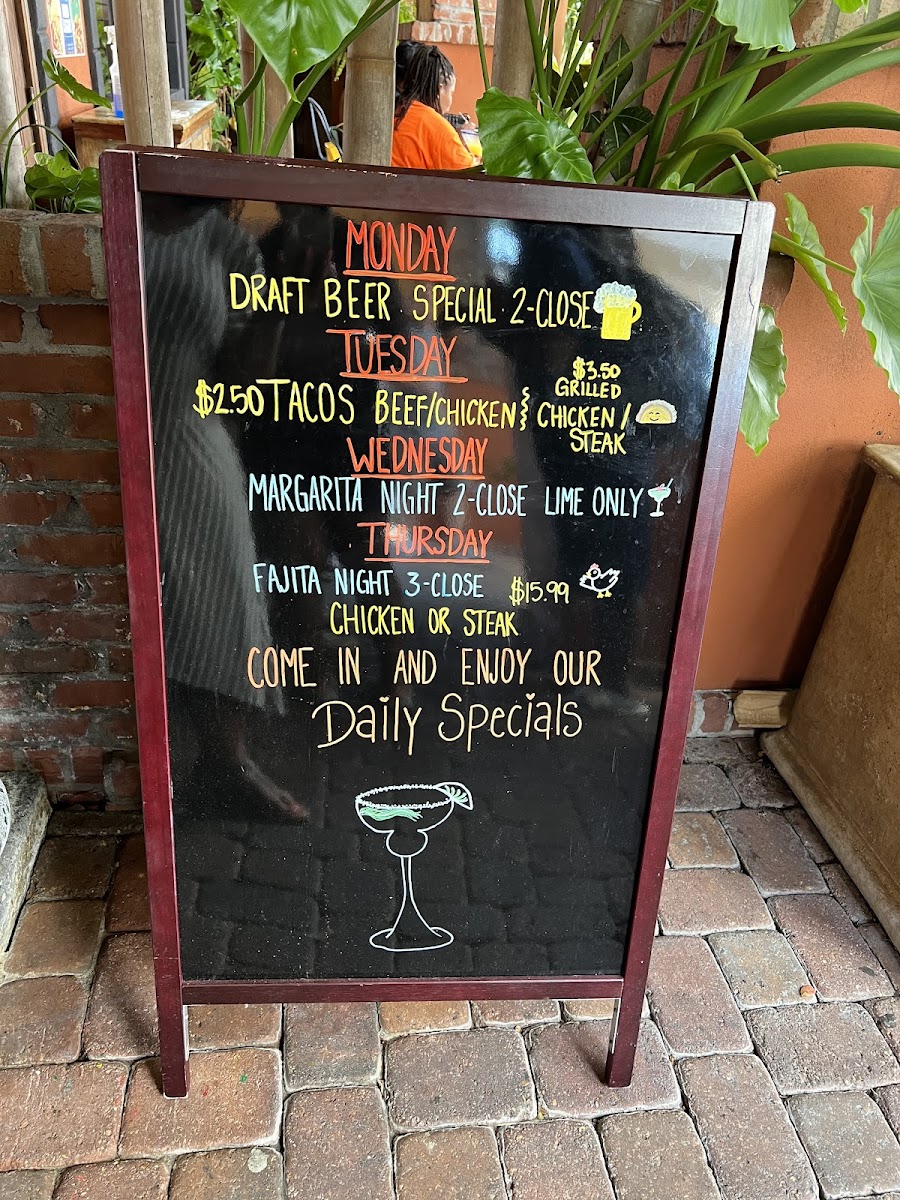 MONDAY
DRAFT BEER SPECIAL 2-CLOSE
TUESDAY
$2.50 TACOS BEEF/CHICKEN
$3.50
GRILLED
CHICKEN/
STEAK
WEDNESDAY
MARGARITA NIGHT 2-CLOSE LIME ONLY
THURSDAY
FAJITA NIGHT 3-CLOSE $15.99
CHICKEN OR STEAK
COME IN AND ENJOY OUR
Daily Specials